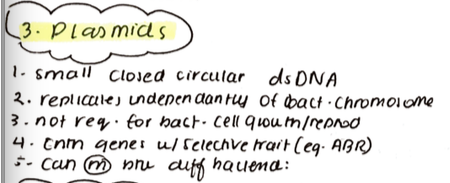 3. Plasmids
1- small closed circular dsDNA
2. replicates independantly of bact. chromosome
3. not req. for bact. cell growth/reprod
4. Cntn genes w/ selective trait (eg. ABR)
5- Can m btw diff bacteria: